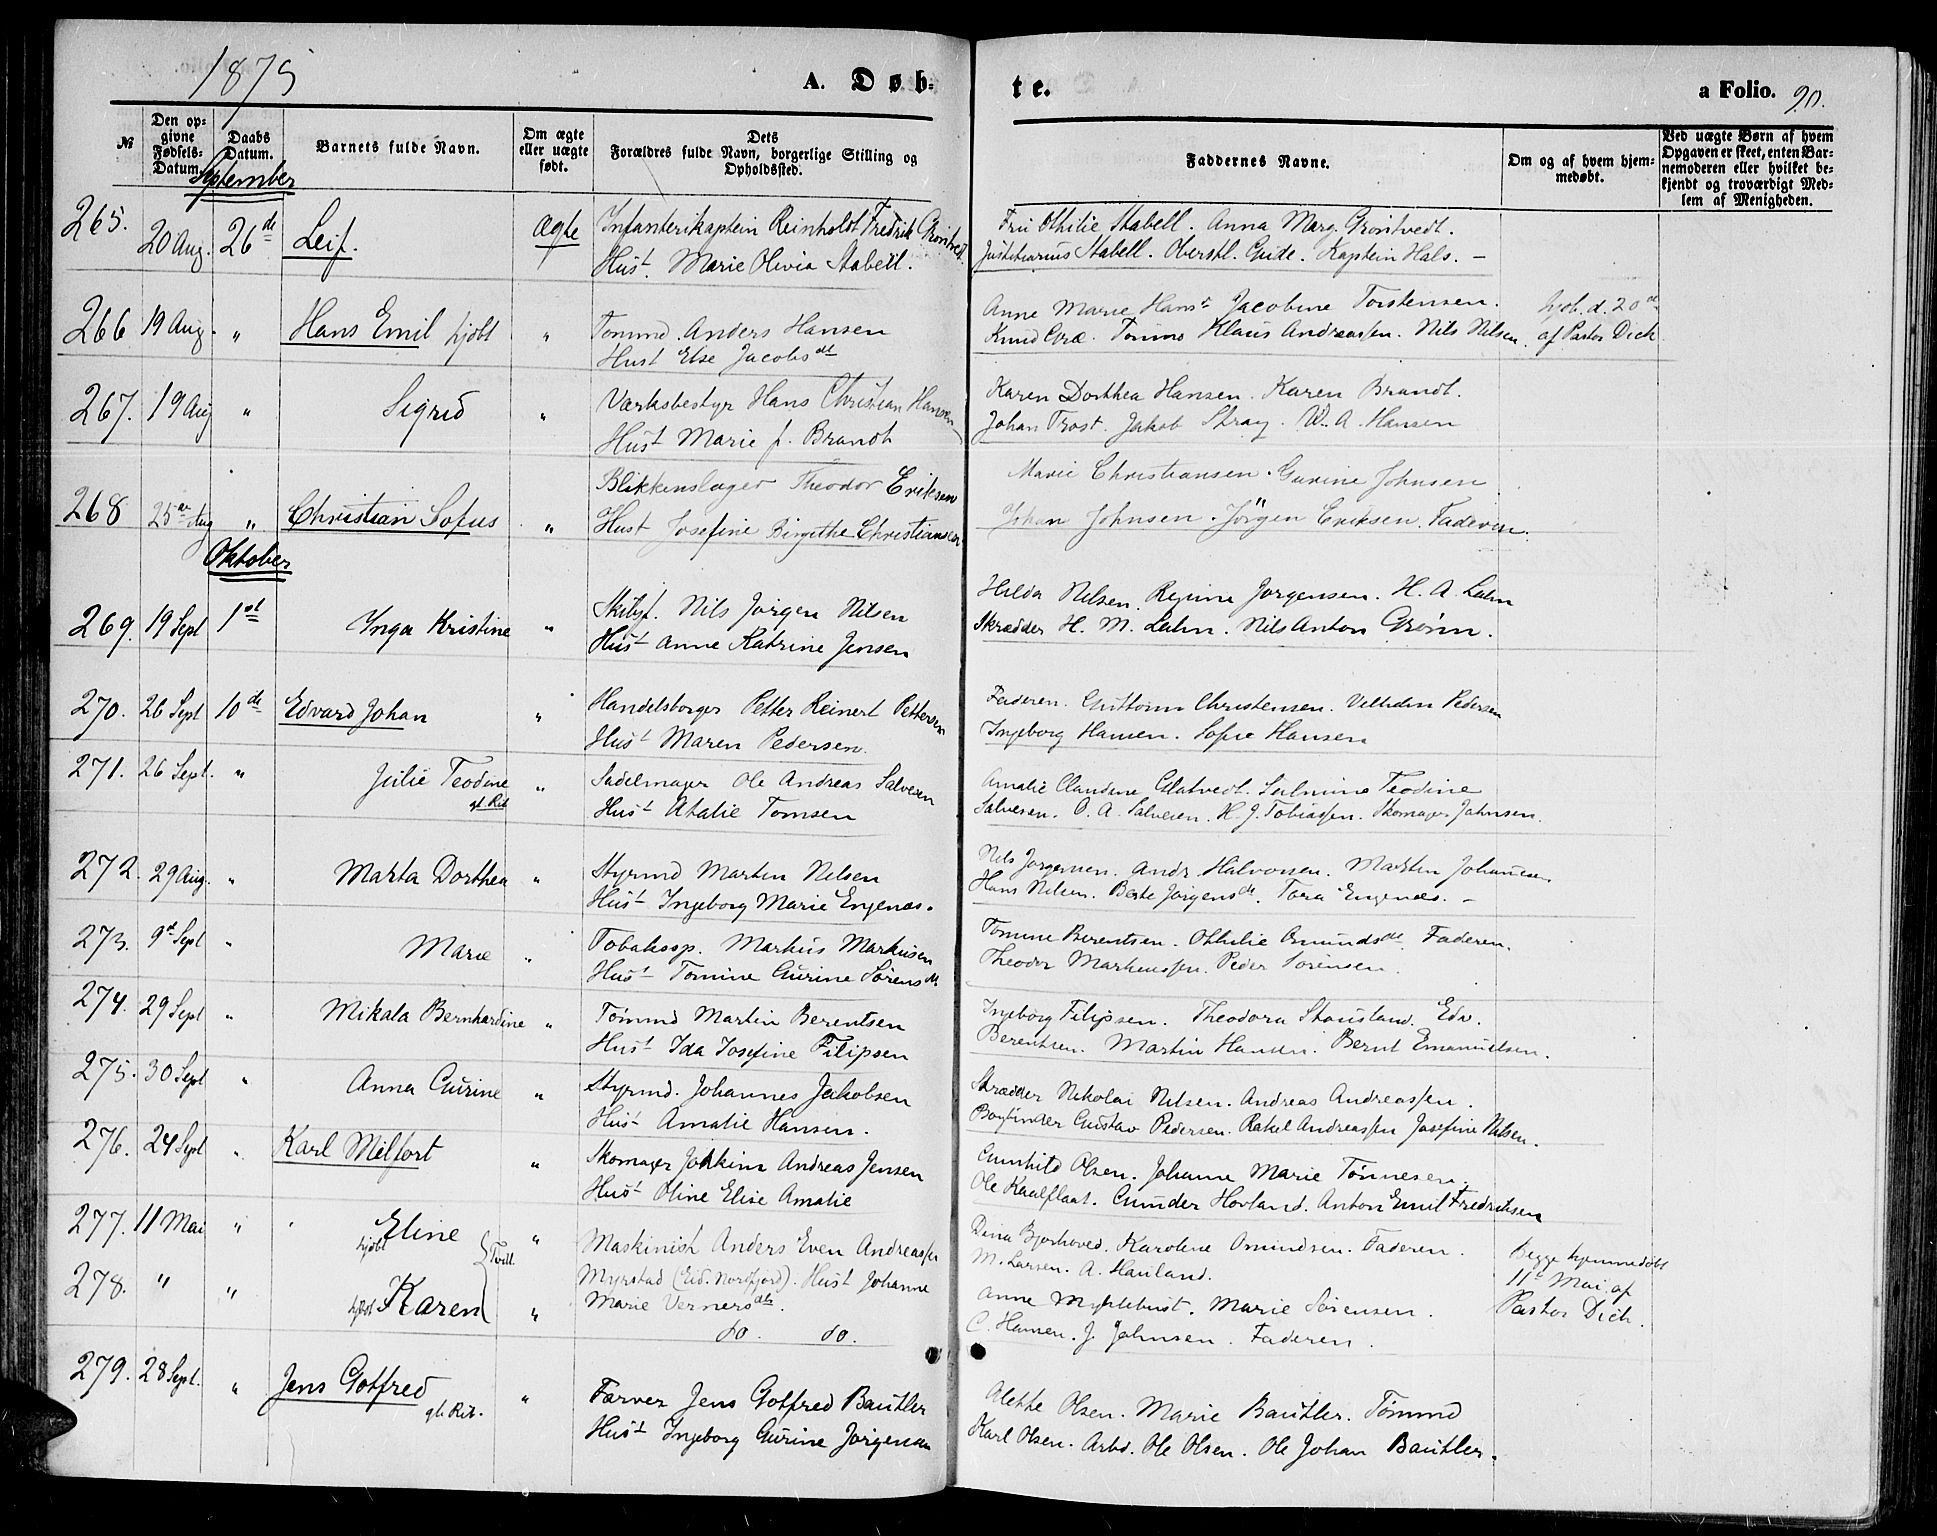 1875
A. Døb-
te.
a Folio. 90.
№
Den opgivne Fødsels-Datum.
Daabs Datum.
Barnets fulde Navn.
Om ægte eller uægte født.
Dets Forældres fulde Navn, borgerlige Stilling og Opholdssted.
Faddernes Navne.
Om og af hvem hjemmedøbt.
Ved uægte Børn af hvem Opgaven er skeet, enten Barnemoderen eller hvilket bekjendt og troværdigt Medlem af Menigheden.
September
265. 20 Aug. 26de Leif. Ægte Infanterikaptein Reinholdt Fredrik Grøntvedt
Hust. Marie Olivia Stabell.
Fru Othilie Stabell. Anna Marg. Grøntvedt.
Justitiarius Stabell. Oberstl. Gride. Kaptein Hals. —
266 19 Aug. " Hans Emil hjdbt " Tømmd. Anders Hansen
Hust Else Jacobsdt
Anne Marie Hansdt Jacobine Torstensen.
Knud Torstensen. Klaus Andreassen. Nils Nilsen.
hjdb. d. 20de
af Pastor Dick
267. 19 Aug " Sigrid " Værksbestyr Hans Christian Hansen
Hust Marie f. Brandt
Karen Dorthea Hansen. Karen Brandt.
Johan Trost. Jakob Stray. W. A. Hansen
268 25de Aug " Christian Sofus " Blikkenslager Theodor Eriksen
Hust Josefine Birgithe Christiansen
Marie Christiansen. Gurine Johnsen
Johan Johnsen. Jörgen Eriksen. Faderen.
Oktober
269. 19 Sept 1st Inga Kristine " Skibsf. Nils Jörgen Nilsen
Hust Anne Katrine Jensen
Hilda Nilsen. Regine Jørgensen. H. A. Lahn
Skrædder H. M. Lahn. Nils Anton Grønn.
270. 26 Sept 10de Edvard Johan " Handelsborger Petter Reinert Pettersen
Hust Maren Pedersen.
Faderen. Guttorm Christensen. Vilhelm Pedersen
Ingeborg Hansen. Sofie Hansen
271. 26 Sept. " Julie Teodine gl. Rit. " Sadelmager Ole Andreas Salvesen
Hust Atalie Tomsen
Amalie Claudine Glatvedt. Salmine Teodine
Salvesen. O. A. Salvesen. H. J. Tobiassen. Skomager Johnsen.
272. 29 Aug. " Marta Dorthea " Styrmd Martin Nilsen
Hust Ingeborg Marie Engenæs.
Nils Jørgensen. Andr. Halvorsen. Martin Johannesen.
Hans Nilsen. Berte Jørgensdt. Tora Engenæs. —
273. 9de Sept " Marie " Tobakssp. Markus Markusen
Hust Tomine Gurine Sørensdt.
Tomine Berentsen. Othilie Omundsdt. Faderen.
Theodor Markussen. Peder Sørensen.
274. 29 Sept " Mikala Bernhardine " Tømmd Martin Berentsen
Hust Ida Josefine Filipsen
Ingeborg Filipsen. Theodora Stousland. Edv.
Berentsen. Martin Hansen. Bernt Emanuelsen.
275. 30 Sept " Anna Gurine " Styrmd. Johannes Jakobsen
Hust Amalie Hansen.
Skrædder Nikolai Nilsen. Andreas Andreassen.
Bogbinder Gustav Pedersen. Rakel Andreassen Josefine Nilsen.
276. 24 Sept " Karl Milfort " Skomager Joakim Andreas Jensen
Hust Oline Elise Amalie
Gunhild Olsen. Johanne Marie Tönnesen.
Ole Kaalflaat. Gunder Hovland. Anton Emil Fredriksen
277. 11 Mai " Eline hjdbt } Tvill. " Maskinist Anders Even Andreassen
Myrstad (Eid. Nordfjord). Hust Johanne
Dina Bjorhoved. Karoline Omundsen. Faderen.
M. Larsen. A. Hauland.
Begge hjemmedøbt
11te Mai af
Pastor Dick.
278. " " Karen hjdbt " Marie Vernersdtr.
do. do.
Anne Myklebust. Marie Sørensen.
C. Hansen. J. Johnsen. Faderen.
279. 28 Sept. " Jens Gotfred gl. Rit. " Farver Jens Gotfred Bautler
Hust Ingeborg Gurine Jörgensen
Alethe Olsen. Marie Bautler. Tømmd
Karl Olsen. Arbd. Ole Olsen. Ole Johan Bautler.